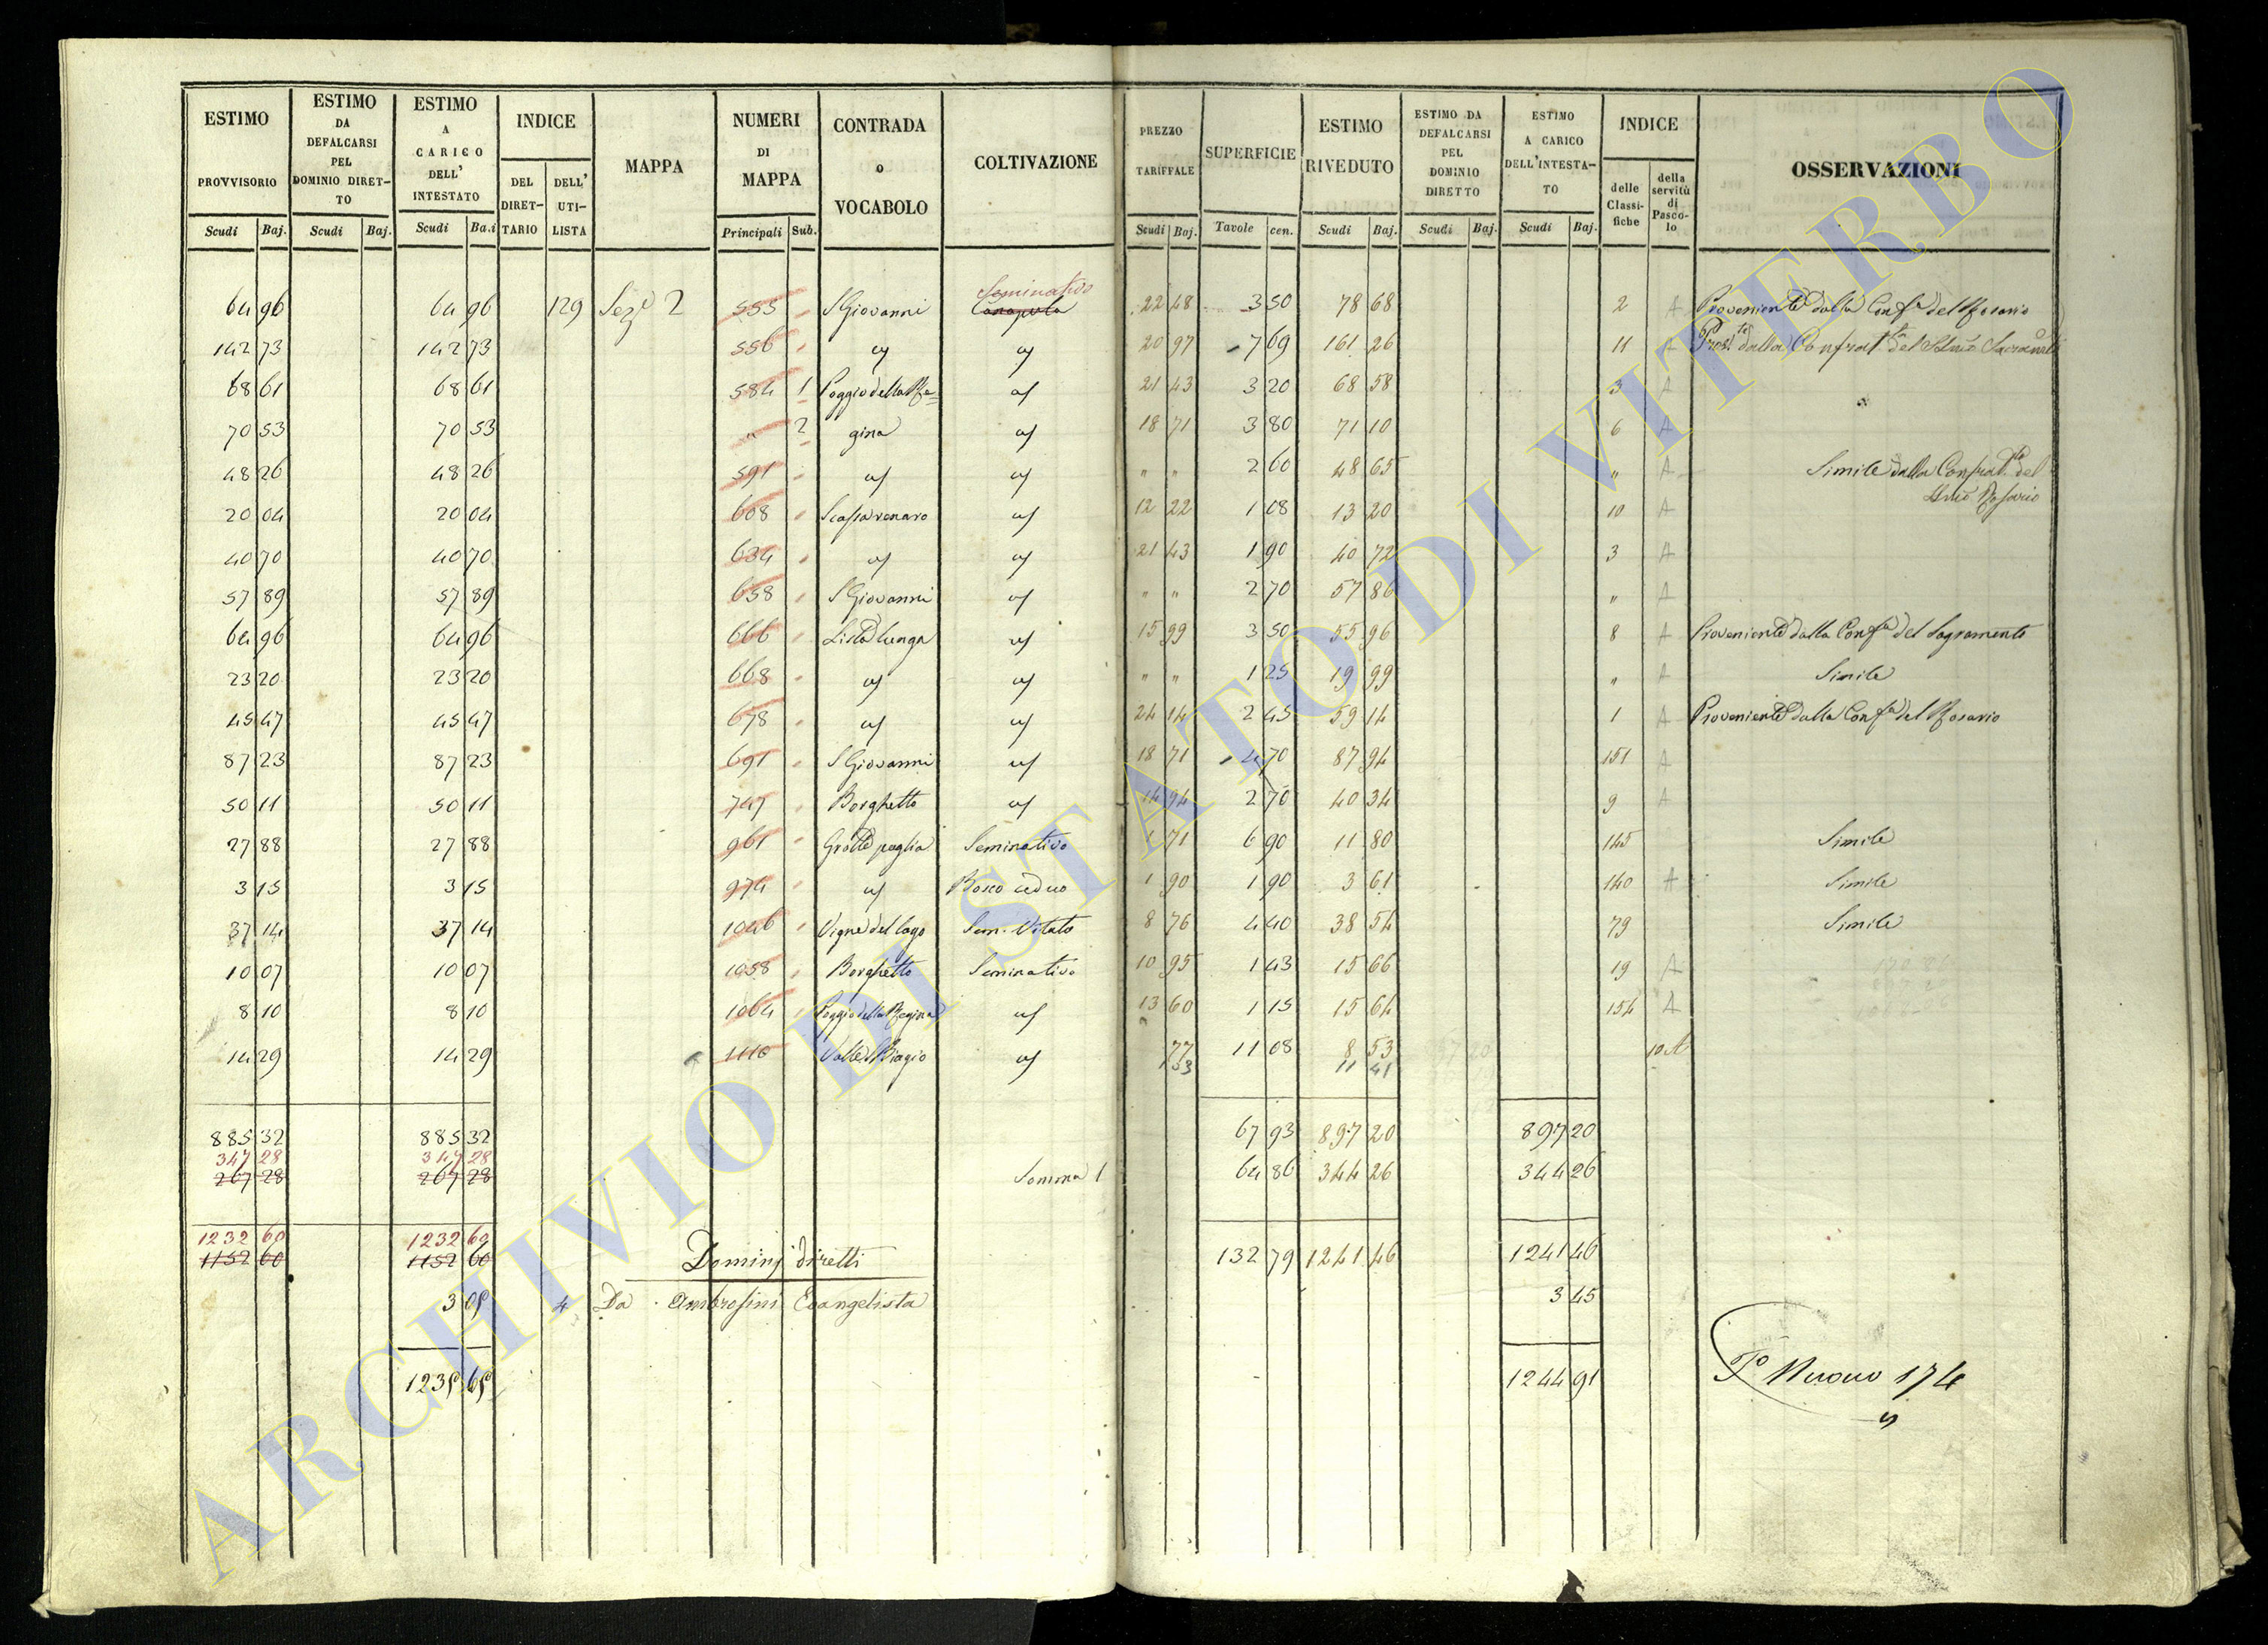 ESTIMO PROVVISORIO Scudi Baj.
ESTIMO DA DEFALCARSI PEL DOMINIO DIRET-TO Scudi Baj.
ESTIMO A CARICO DELL' INTESTATO Scudi Ba.i
INDICE DEL DIRET-TARIO DELL' UTI-LISTA
MAPPA
NUMERI DI MAPPA Principali Sub.
CONTRADA o VOCABOLO
COLTIVAZIONE
PREZZO TARIFFALE Scudi Baj.
SUPERFICIE Tavole cen.
ESTIMO RIVEDUTO Scudi Baj.
ESTIMO DA DEFALCARSI PEL DOMINIO DIRETTO Scudi Baj.
ESTIMO A CARICO DELL'INTESTA-TO Scudi Baj.
INDICE delle Classi-fiche della servitù di Pasco-lo
OSSERVAZIONI
Seminativo
64 96 64 96 129 Sez.e 2 555 S Giovanni Canapula 22 48 3 50 78 68 2 A Proveniente dalla Conf.a del Rosario
142 73 142 73 556 " 20 97 7 69 161 26 11 A dalla Confrat.
68 61 68 61 584 1 Poggio della Re= 21 43 3 20 68 58 3 A
70 53 70 53 " 2 gina 18 71 3 80 71 10 6 A
48 26 48 26 591 " " 2 60 48 65 " A Simile dalla Confrat. del
Rosario
20 04 20 04 608 12 22 1 08 13 20 10 A
40 70 40 70 634 21 43 1 90 40 72 3 A
57 89 57 89 658 S Giovanni " " 2 70 57 86 " A
64 96 64 96 666 Lista lunga 15 99 3 50 55 96 8 A Proveniente dalla Conf.a del Sagramento
23 20 23 20 668 " " 1 25 19 99 " A Simile
45 47 45 47 678 24 14 2 45 59 14 1 A Proveniente dalla Conf.a del Rosario
87 23 87 23 691 S Giovanni 18 71 4 70 87 94 151 A
50 11 50 11 747 Borghetto 14 94 2 70 40 34 9 A
27 88 27 88 961 Grotte paglia Seminativo 1 71 6 90 11 80 145 Simile
3 15 3 15 974 Bosco ceduo 1 90 1 90 3 61 140 A Simile
37 14 37 14 1046 Vigne del lago Sem. Vitato 8 76 4 40 38 54 79 Simile
10 07 10 07 1058 Borghetto Seminativo 10 95 1 43 15 66 19 A
8 10 8 10 1064 Poggio della Regina 13 60 1 15 15 64 154 A
14 29 14 29 1110 Valle S Biagio 77 11 08 8 53 10 A
1 53 11 41
885 32 885 32 67 93 897 20 897 20
347 28 347 28
267 28 267 28 Somma 1 64 86 344 26 344 26
1232 60 1232 60
1152 60 1152 60 Dominj diretti 132 79 1241 46 1241 46
3 05 4 Da Ambrosini Evangelista 3 45
1235 65 1244 91 F.o Nuovo 174
ARCHIVIO DI STATO DI VITERBO